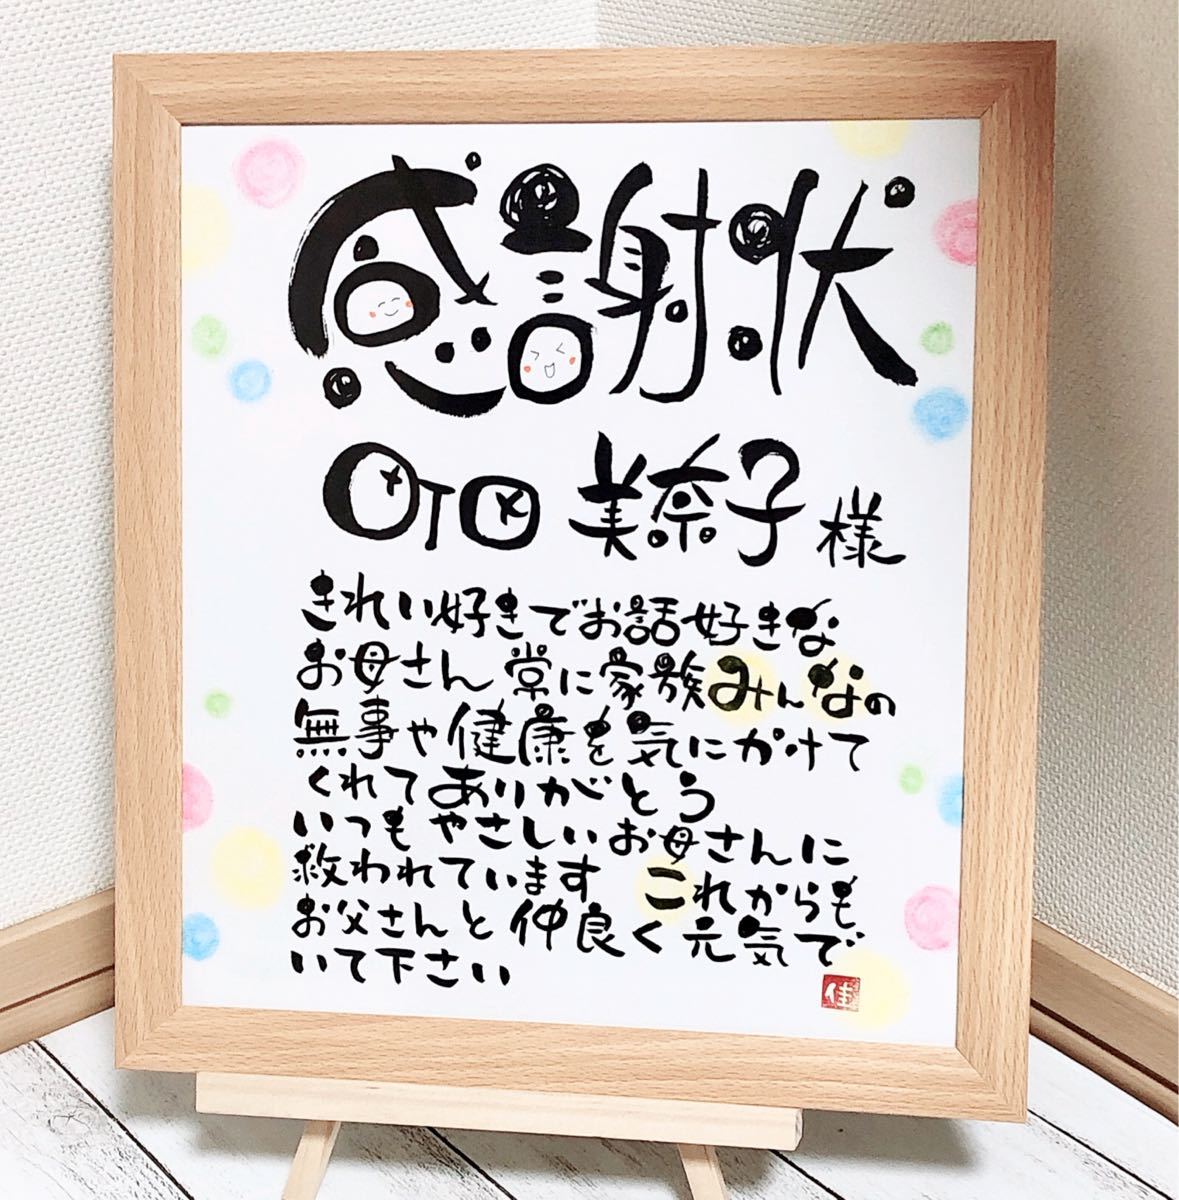 感謝状
町田 美奈子 様
きれい好きでお話好きな
お母さん 常に家族みんなの
無事や健康を気にかけて
くれてありがとう
いつもやさしいお母さんに
救われています これからも
お父さんと仲良く元気で
いて下さい
佳